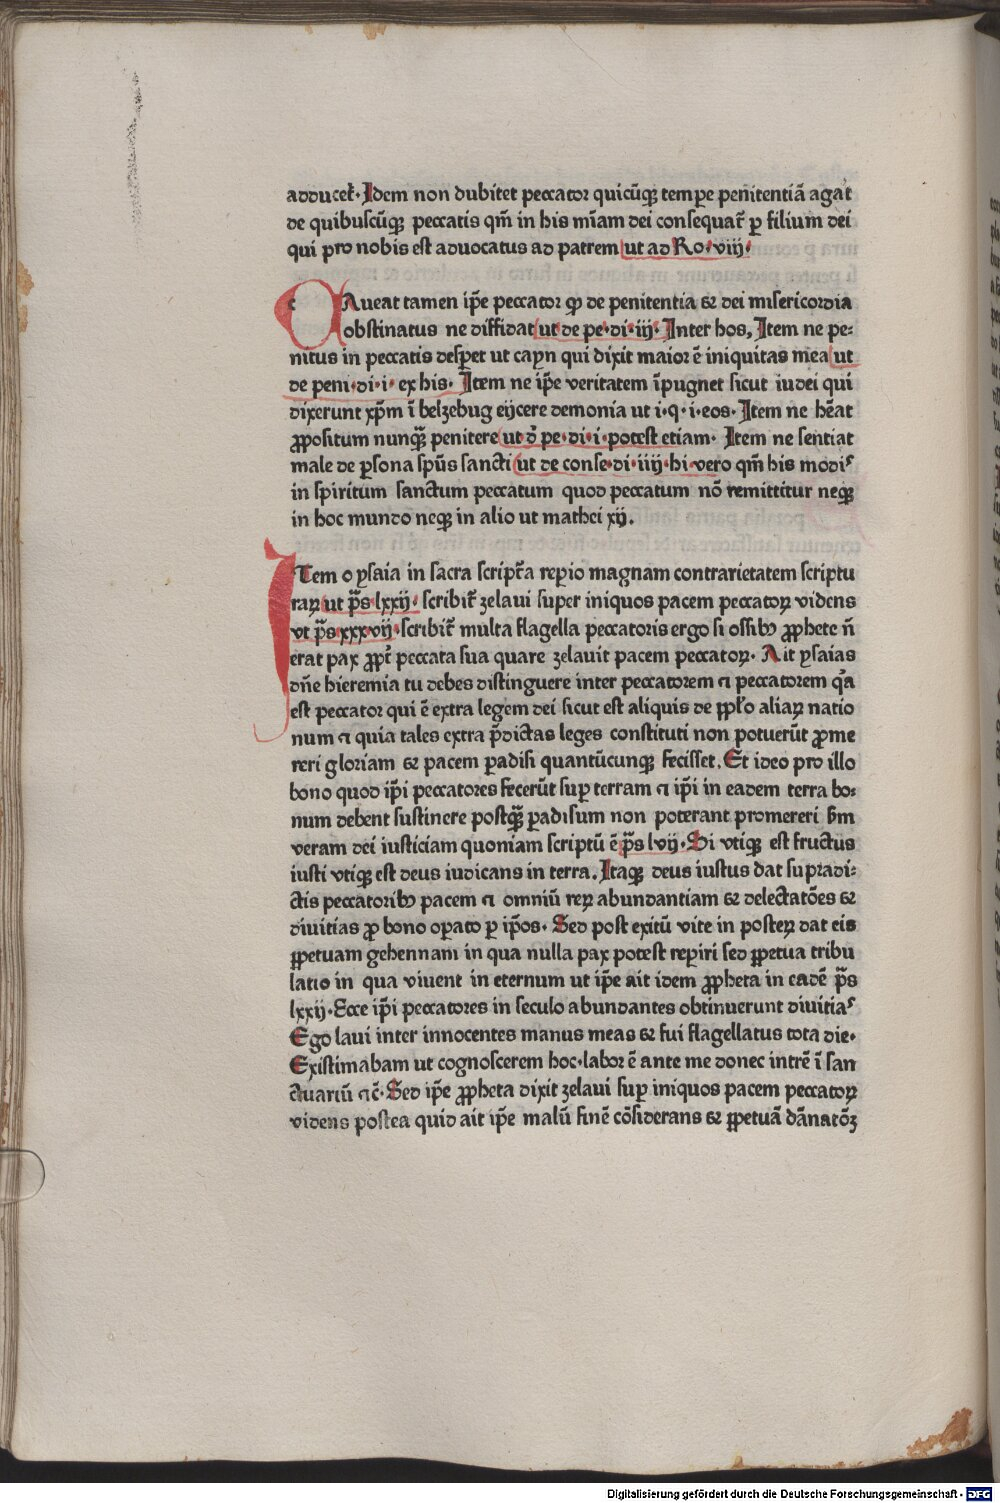 adducet̄. Idem non dubitet peccator quicūq̄ꝫ tempe penitentiā agat
de quibuscūqꝫ peccatis qm̄ in his mīam dei consequat̄ ꝑ filium dei
qui pro nobis est aduocatus ad patrem ut ad Ro·viij·
CAueat tamen ip̄e peccator ꝙ de penitentia & dei misericordia
obstinatus ne diffidat ut de pe·di·iij· Inter hos, Item ne pe⸗
nitus in peccatis desꝑet ut cayn qui dixit maior ē iniquitas mea ut
de peni·di·i· ex his· Item ne ip̄e veritatem īpugnet sicut iudei qui
dixerunt xp̄m ī belzebug eijcere demonia ut i·q·i·eos· Item ne hēat
ꝓpositum nunqꝫ̄ penitere ut d̄ pe·di·i·potest etiam· Item ne sentiat
male de ꝑsona sp̄us sancti ut de conse·di·iiij·hi·vero qm̄ his modis
in spiritum sanctum peccatum quod peccatum nō remittitur neqꝫ
in hoc mundo neqꝫ in alio ut mathei xij.
ITem o ysaia in sacra script̄a reꝑio magnam contrarietatem scriptu
raꝝ ut p̄s lxxij· scribit̄ zelaui super iniquos pacem peccatoꝝ videns
vt p̄s xxxvij·scribit̄ multa flagella peccatoris ergo si ossibꝫ ꝓphete n̄
erat pax ꝓpt̄ peccata sua quare zelauit pacem peccatoꝝ· Ait ysaias
dn̄e hieremia tu debes distinguere inter peccatorem ⁊ peccatorem qa
est peccator qui ē extra legem dei sicut est aliquis de ppl̄o aliaꝝ natio
num ⁊ quia tales extra p̄dictas leges constituti non potuerūt ꝓme
reri gloriam & pacem ꝑadisi quantūcunqꝫ fecisset. Et ideo pro illo
bono quod ip̄i peccatores fecerūt suꝑ terram ⁊ ip̄i in eadem terra bo⸗
num debent sustinere postqꝫ̄ ꝑadisum non poterant promereri ƀm
veram dei iusticiam quoniam scriptū ē p̄s lvij· Si vtiqꝫ est fructus
iusti vtiqꝫ est deus iudicans in terra. Itaqꝫ deus iustus dat supradi⸗
ctis peccatoribꝫ pacem ⁊ omniū reꝝ abundantiam & delectatōes &
diuitias ꝓ bono oꝑato ꝑ ip̄os· Sed post exitū vite in posteꝝ dat eis
ꝑpetuam gehennam in qua nulla pax potest reꝑiri sed ꝑpetua tribu
latio in qua viuent in eternum ut ip̄e ait idem ꝓpheta in eadē p̄s
lxxij·Ecce ip̄i peccatores in seculo abundantes obtinuerunt diuitias
Ego laui inter innocentes manus meas & fui flagellatus tota die·
Existimabam ut cognoscerem hoc·labor ē ante me donec intrē ī san
ctuariū ⁊c̄· Sed ip̄e ꝓpheta dixit zelaui suꝑ iniquos pacem peccatoꝝ
videns postea quid ait ip̄e malū finē cōsiderans & ꝑpetuā dānatōꝫ
Digitalisierung gefördert durch die Deutsche Forschungsgemeinschaft - DFG